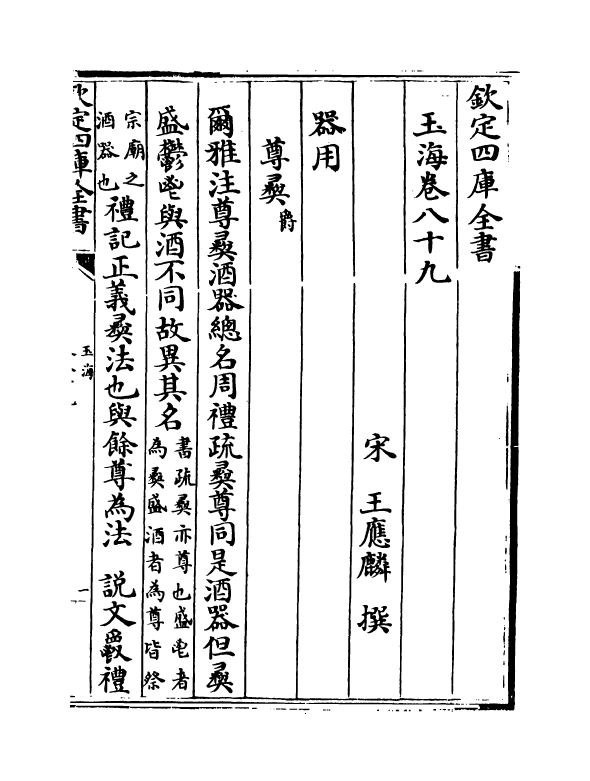 欽定四庫全書
玉海卷八十九
宋 王應麟 撰
器用
尊彞爵
爾雅注尊彞酒器總名周禮疏彞尊同是酒器但彞
盛鬱鬯與酒不同故異其名書疏彞亦尊也盛鬯者為彞盛酒者為尊皆祭
宗廟之酒器也禮記正義彞法也與餘尊為法 説文彞禮
欽定四庫全書
玉海
一